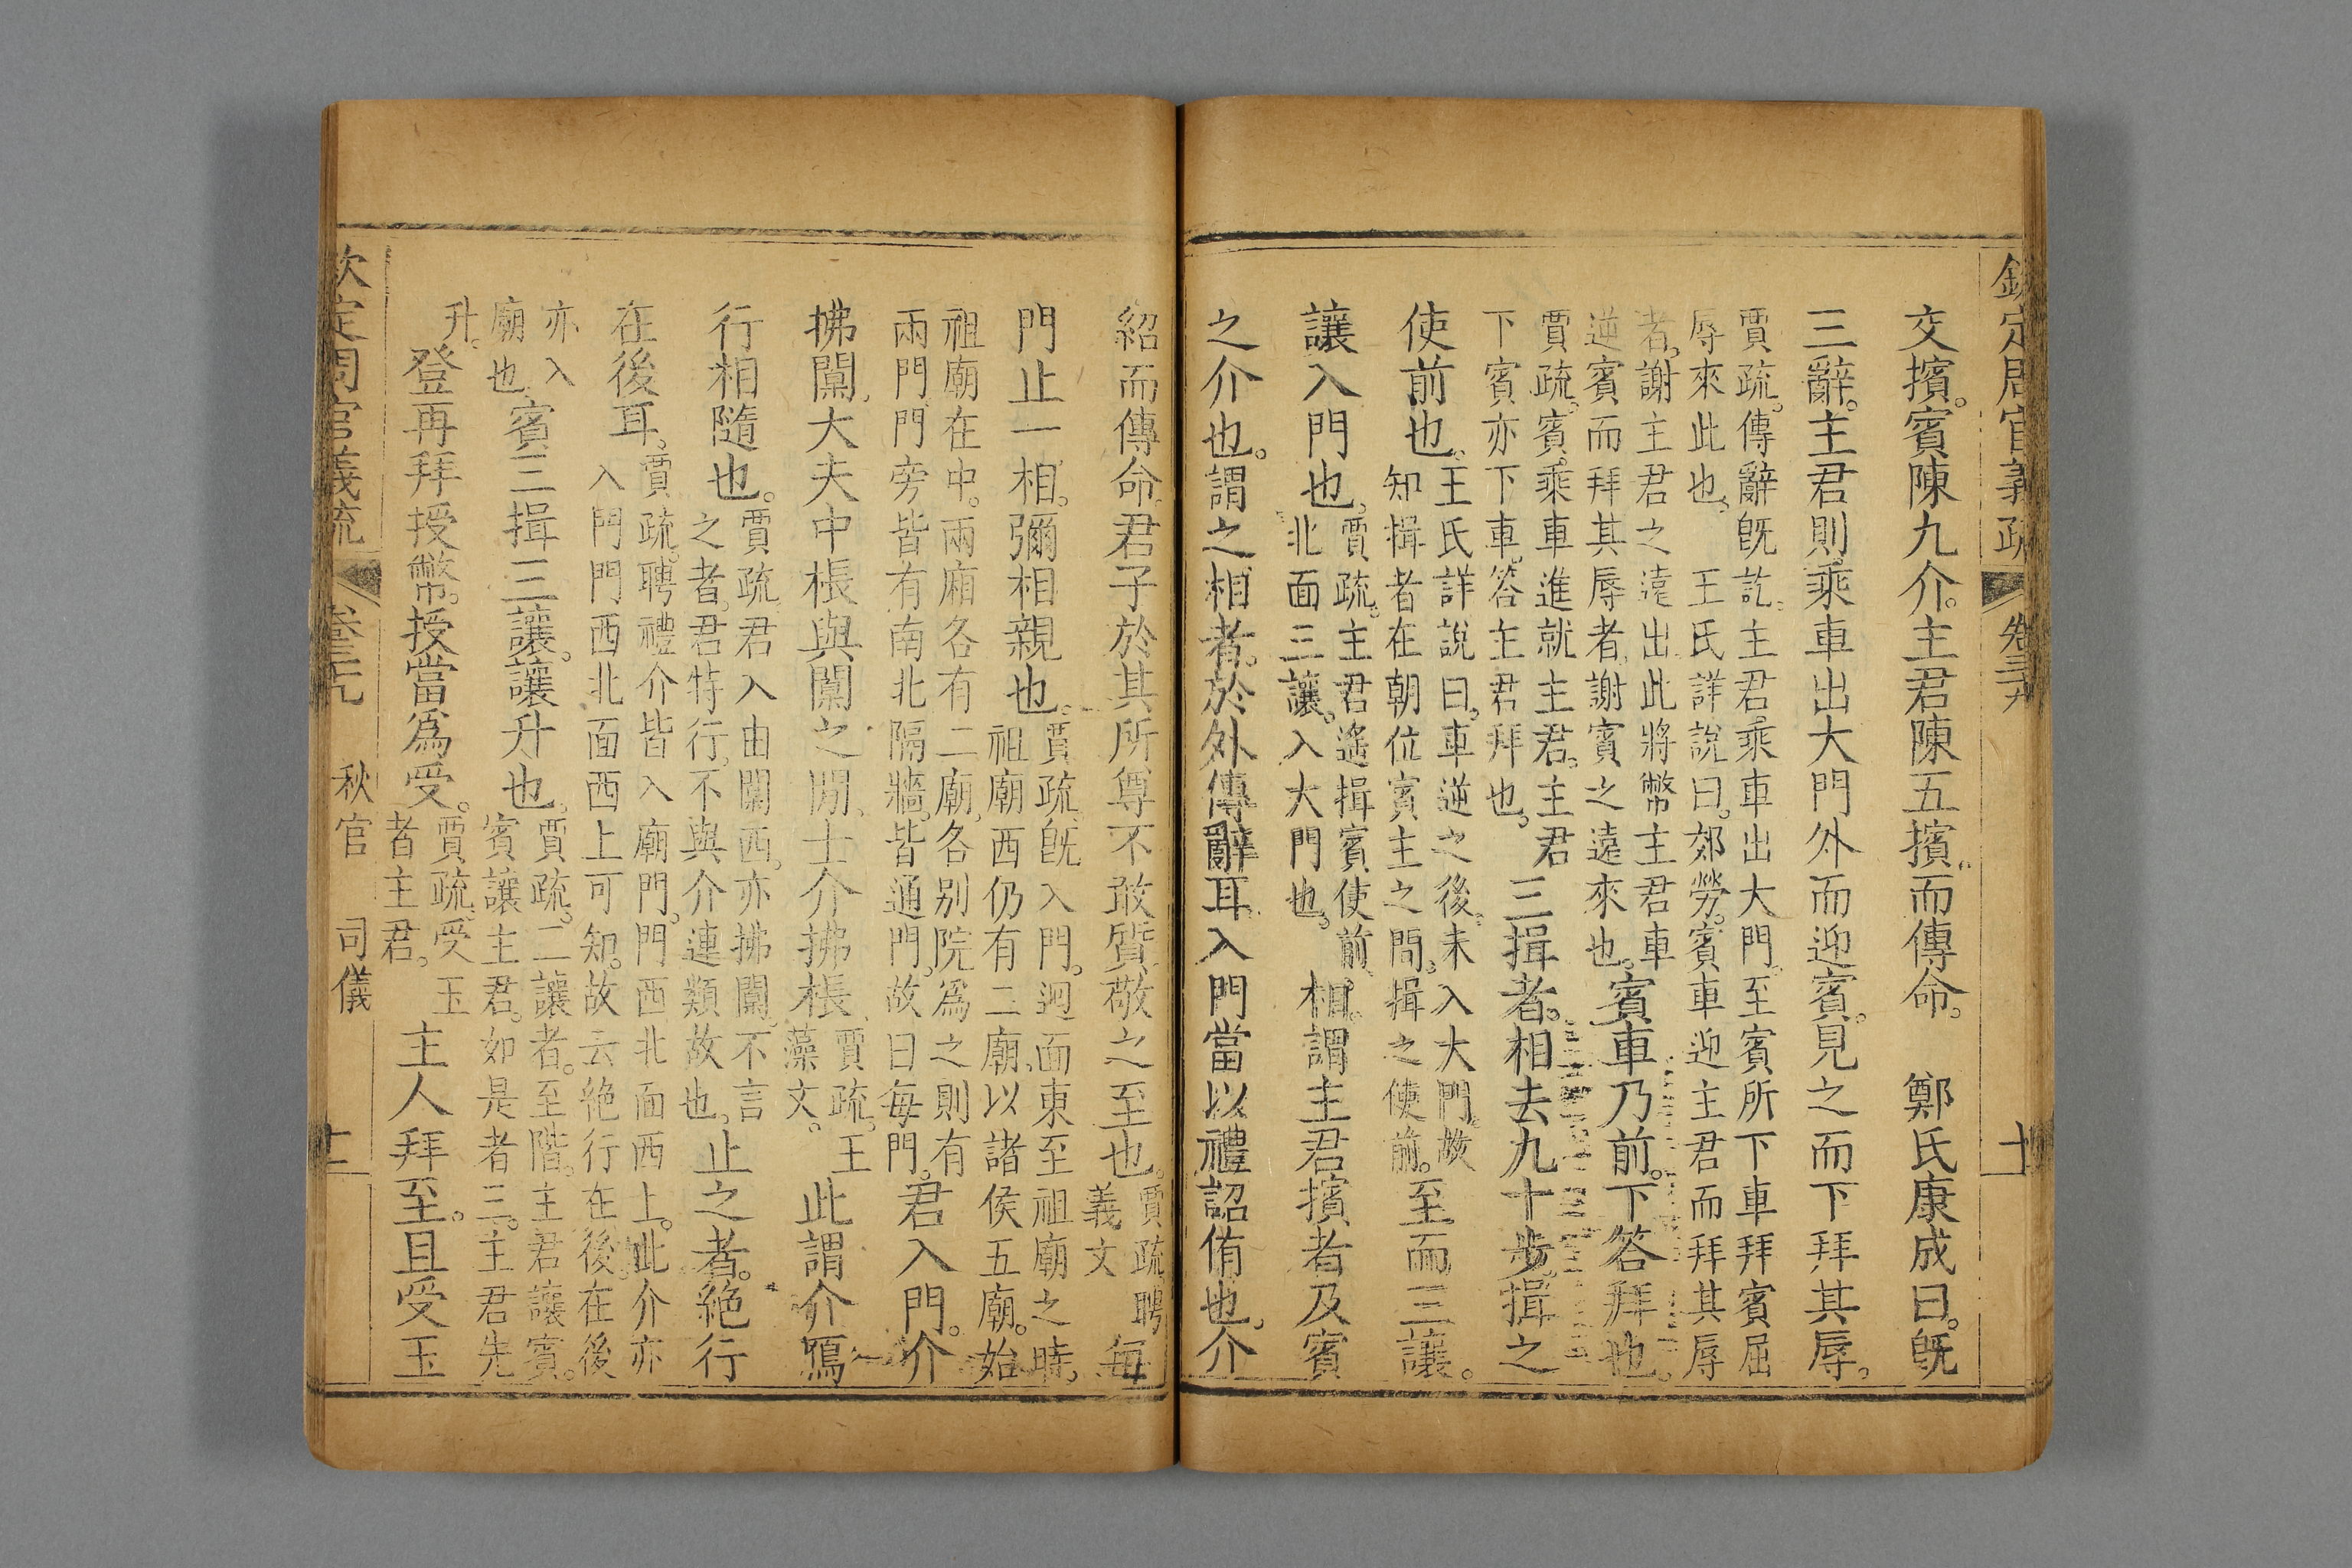 欽定周官義疏 卷三十九 十
交擯。賓陳九介。主君陳五擯。而傳命。 鄭氏康成曰。旣
三辭。主君則乘車出大門外而迎賓。見之而下拜其辱。
賈疏。傳辭旣訖。主君乘車出大門。至賓所下車拜賓屈
辱來此也。 王氏詳說曰。郊勞。賓車迎主君而拜其辱
者。謝主君之遠出此將幣主君車
逆賓而拜其辱者。謝賓之遠來也。賓車乃前。下答拜也。
賈疏。賓乘車進就主君。主君
下賓亦下車。答主君拜也。三揖者。相去九十步。揖之
使前也。王氏詳說曰。車逆之後。未入大門。故
知揖者在朝位賓主之間。揖之使前。至而三讓。
讓入門也。賈疏。主君遙揖賓使前。
北面三讓。入大門也。相。謂主君擯者及賓
之介也。謂之相者。於外傳辭耳。入門當以禮詔侑也。介
紹而傳命。君子於其所尊不敢質。敬之至也。賈疏。聘
義文 每
門止一相。彌相親也。賈疏。旣入門。迴面東至祖廟之時。
祖廟西仍有二廟。以諸侯五廟。始
祖廟在中。兩廂各有二廟。各別院爲之則有
兩門。門旁皆有南北隔牆。皆通門。故曰每門。君入門。介
拂闑。大夫中棖與闑之閒。士介拂棖。賈疏。王
藻文。 此謂介鴈
行相隨也。賈疏。君入由闑西。亦拂闑。不言
之者。君特行。不與介連類故也。止之者。絕行
在後耳。賈疏。聘禮介皆入廟門。門西北面西上。此介亦
入門門西北面西上可知。故云絕行在後。在後
亦入
廟也。賓三揖三讓。讓升也。賈疏。二讓者。至階。主君讓賓。
賓讓主君。如是者三。主君先
升。登再拜授幣。授當爲受。賈疏。受玉
者主君。主人拜至。且受玉
欽定周官義疏 卷三十九 秋官 司儀 十一